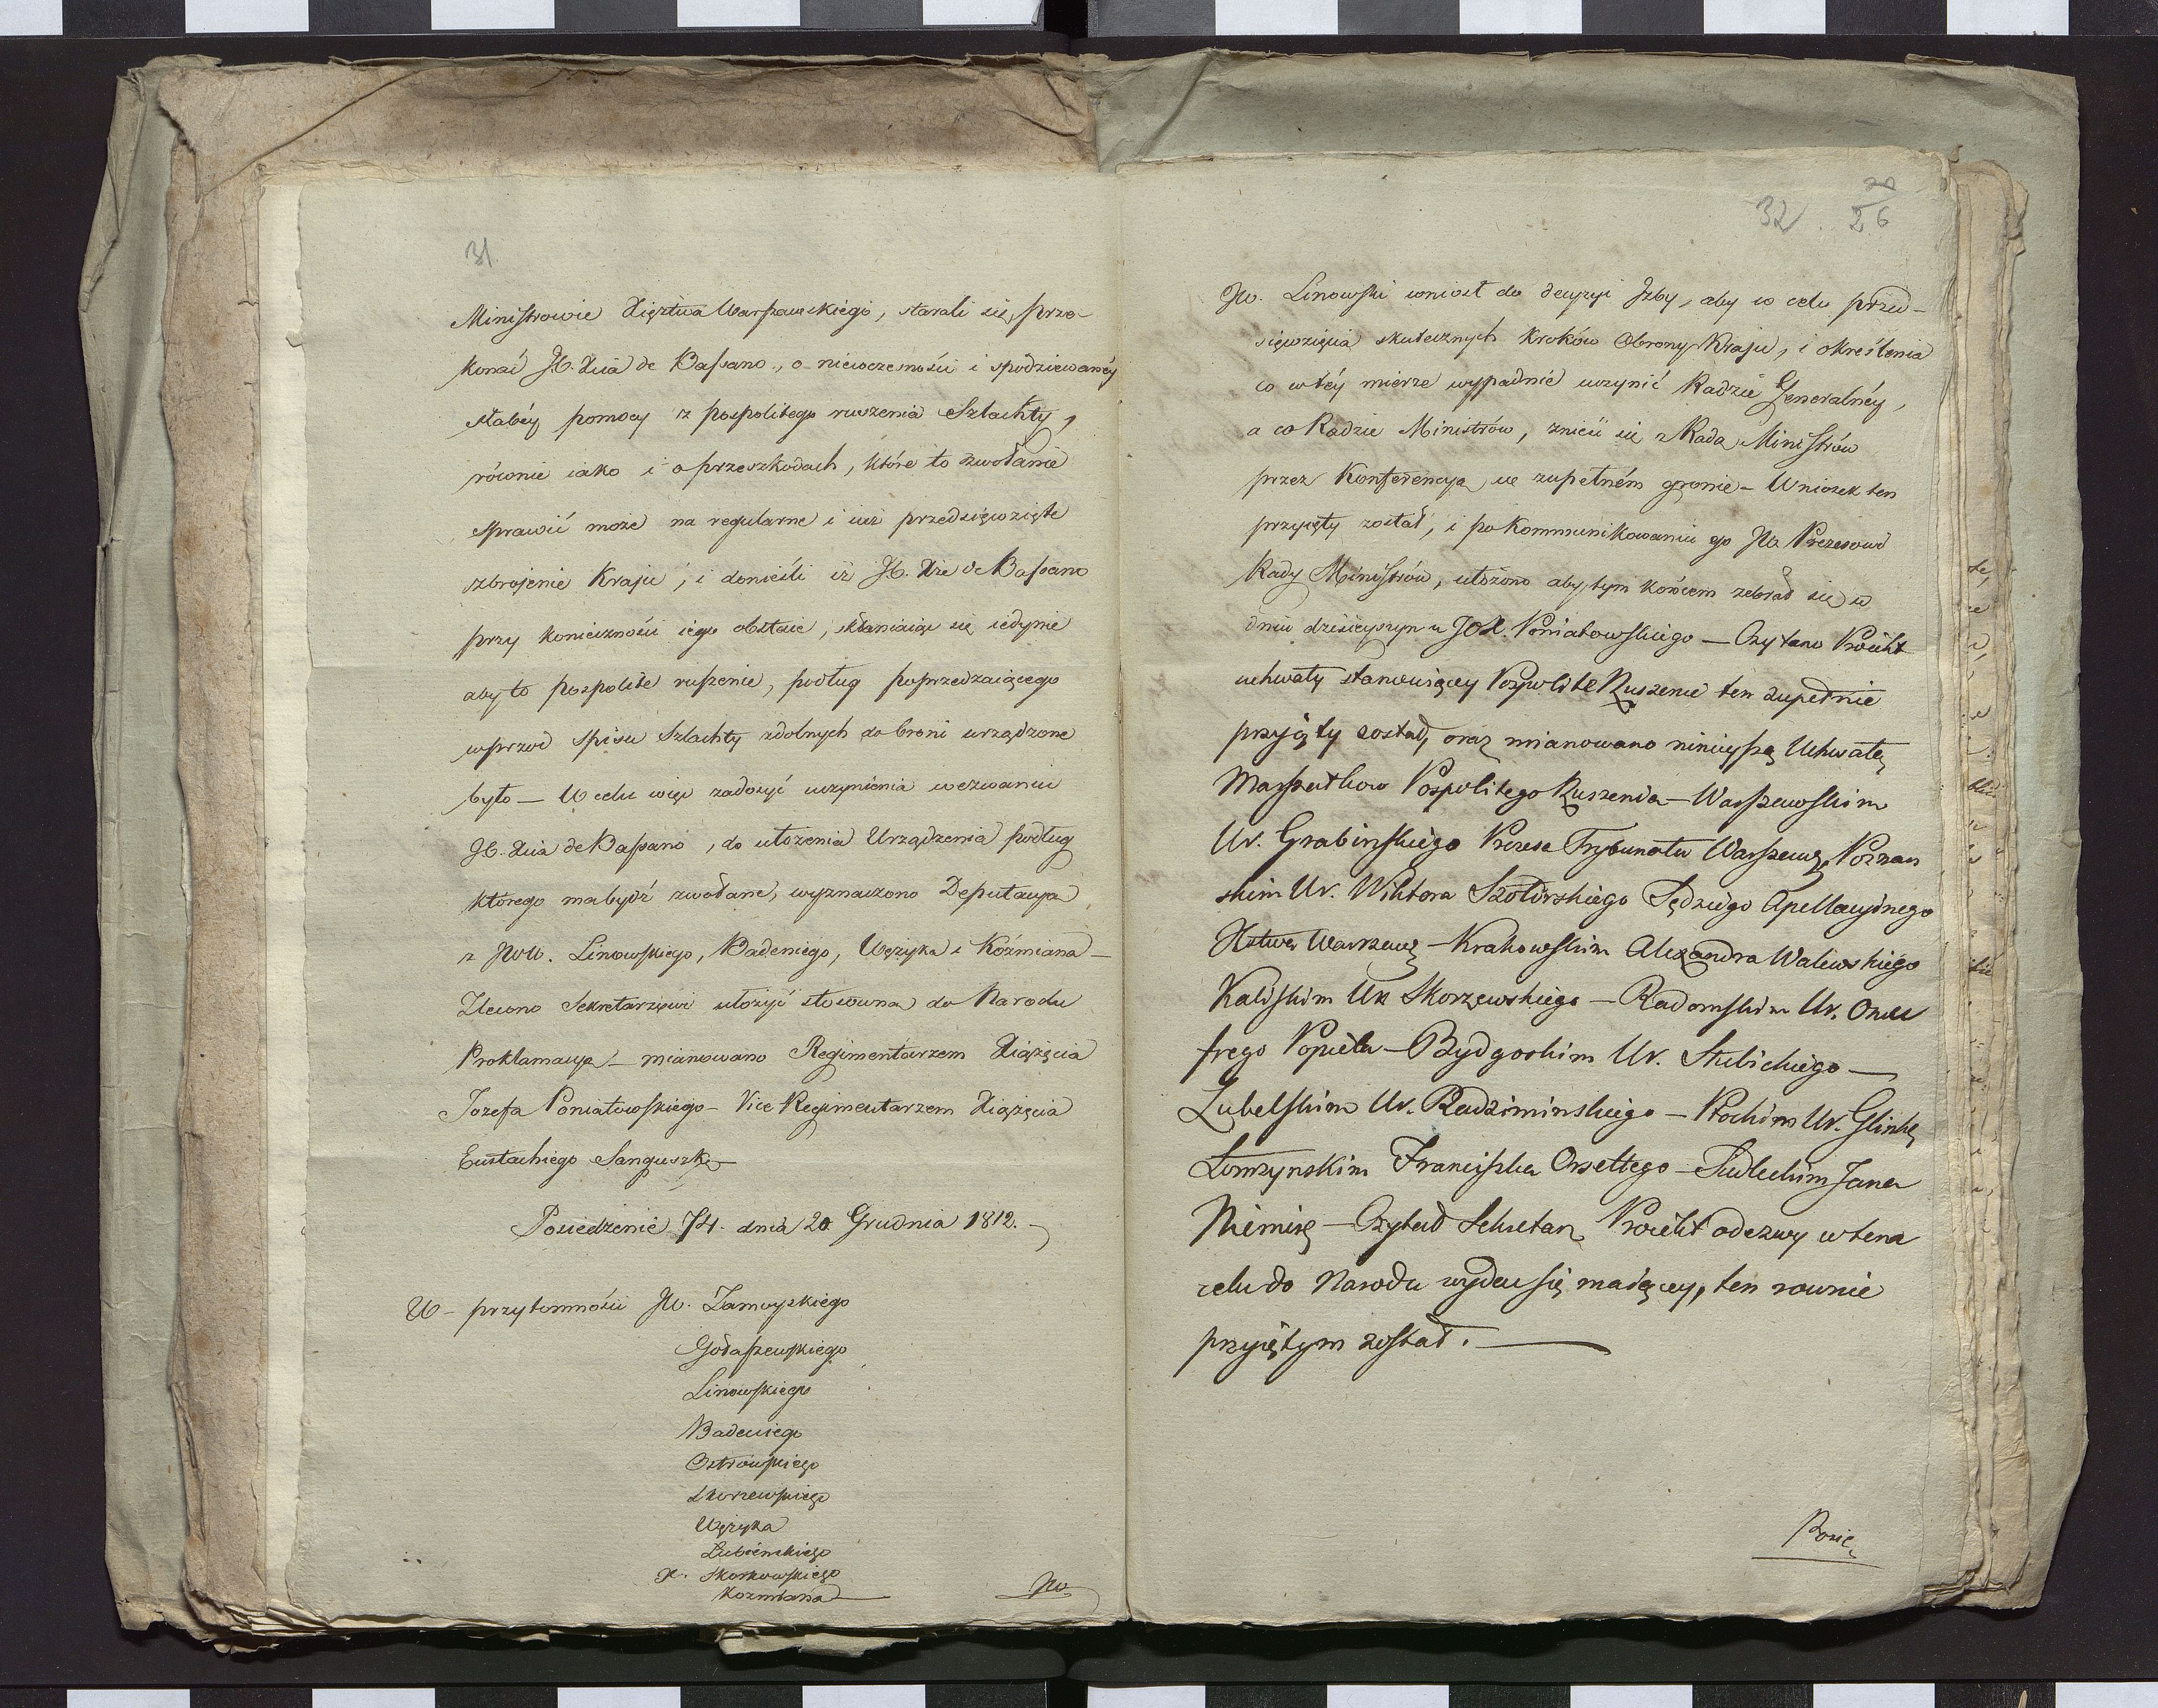 31.
Ministrowie Xięztwa Warszawskiégo, starali się, prze-
konać JO. Xcia de Bassano, o niewczesności i spodziewanéy
słabéy pomocy z pospolitego ruszenia Szlachty,
równie iako i o przeszkodach, które to zwołanie
sprawić może na regularne i iuż przedsięwzięte
uzbrojenie Kraju, i donieśli iż JO. Xże de Bassano
przy konieczności iego obstaie, skłaniaiąc się iedynie
aby to pospolite ruszenie, podług poprzedzaiącego
wprzod spisu Szlachty zdolnych do broni urządzone
było — W celu więc zadosyć uczynienia wezwaniu
JO. Xcia de Bassano, do ułożenia Urządzenia podług
którego ma bydź zwołane, wyznaczono Deputacyą
z JWW. Linowskiego, Badeniego, Węzyka i Koźmiana —
Zlecono Sekretarzowi ułożyć stosowną do Narodu
Proklamacyą — mianowano Regimentarzem Xiążęcia
Jozefa Poniatowskiego — Vice Regimentarzem Xiążęcia
Eustachiego Sanguszkę —
Posiedzenie 74. dnia 20 Grudnia 1812. —
W — przytomności JW. Zamoyskiego
Gołaszewskiego
Linowskiego
Badeniego
Ostrowskiego
Skorzewskiego
Węzyka
Łubieńskiego
X. Skorkowskiego
Kozmiana —
JW.
32. 26
JW. Linowski wniosł do decyzyi Izby, aby w celu przed-
sięwzięcia skutecznych kroków Obrony Kraju, i określenia
co w téy mierze wypadnie uczynić Radzie Generalnéy,
a co Radzie Ministrów, znieść się z Radą Ministrów
przez Konferencyą we zupełném gronie — Wniosek ten
przyięty został, i po kommunikowaniu go JW. Prezesowi
Rady Ministrów, ułożono aby tym końcem zebrać się w
dniu dzisieyszym u JOX. Poniatowskiego — Czytano Proiekt
uchwały stanowiącey Pospolite Ruszenie ten zupełnie
przyięty został, oraz mianowano ninieyszą Uchwałą
Marszałkow Pospolitego Ruszenia — Warszawskim
Ur. Grabinskiego Prezesa Trybunału Warszaws, Poznan
skim Ur. Wiktora Szołdrskiego Sędziego Apellacyinego
Xstwa Warszaws — Krakowskim Alexandra Walewskiégo
Kaliskim Ur. Skorzewskiego — Radomskim Ur. Onu
frego Popiela — Bydgoskim Ur. Stubickiego —
Lubelskim Ur. Radziminskiego — Płockim Ur. Glinkę
Łomzynskim Franciszka Orsettego — Siedleckim Jana
Niemirę — Czytał Sekretarz Proiekt odezwy w tem
celu do Narodu wydać się maiącey, ten rownie
przyiętym został. —
Posie